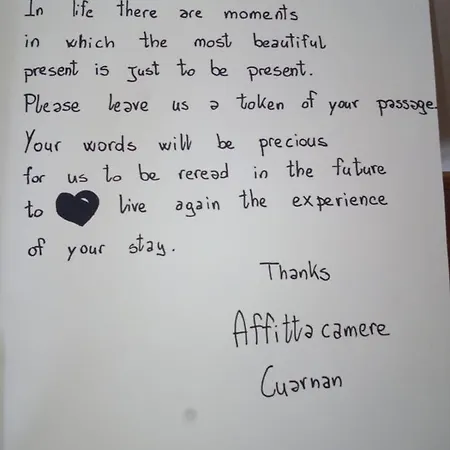 In life there are moments
in which the most beautiful
present is just to be present.
Please leave us a token of your passage.
Your words will be precious
for us to be reread in the future
to live again the experience
of your stay.
Thanks
Affitta camere
Cuarnan